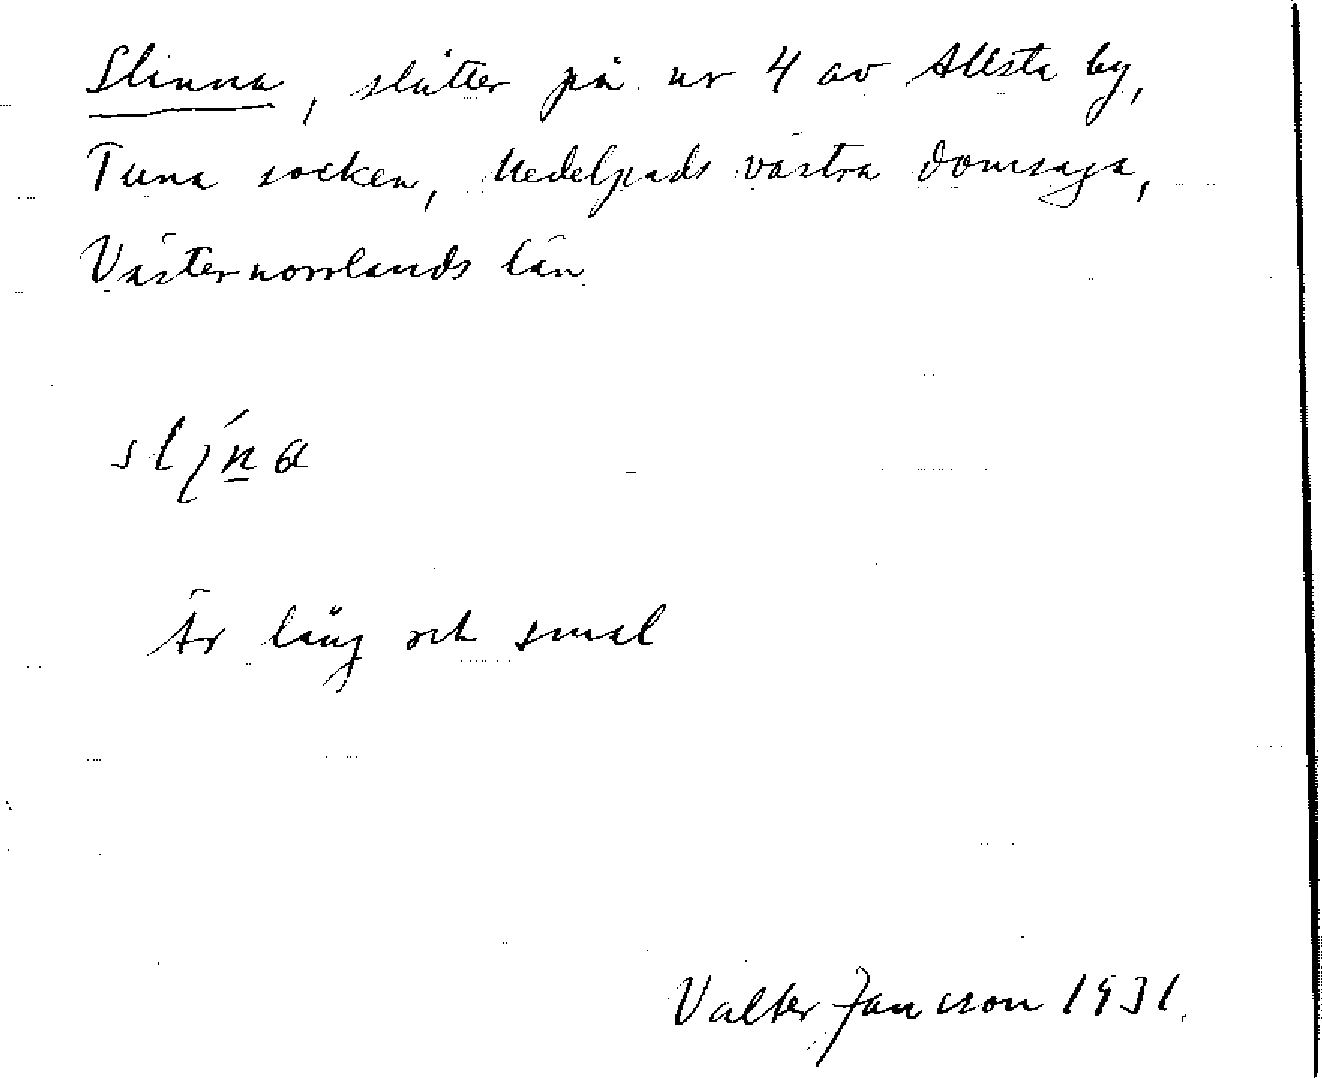 Slinna, slåtter på nr 4 av Allsta by,
Tuna socken, Medelpads västra domsaga,
Västernorrlands län.
Är lång och smal
Valter Jansson 1931.